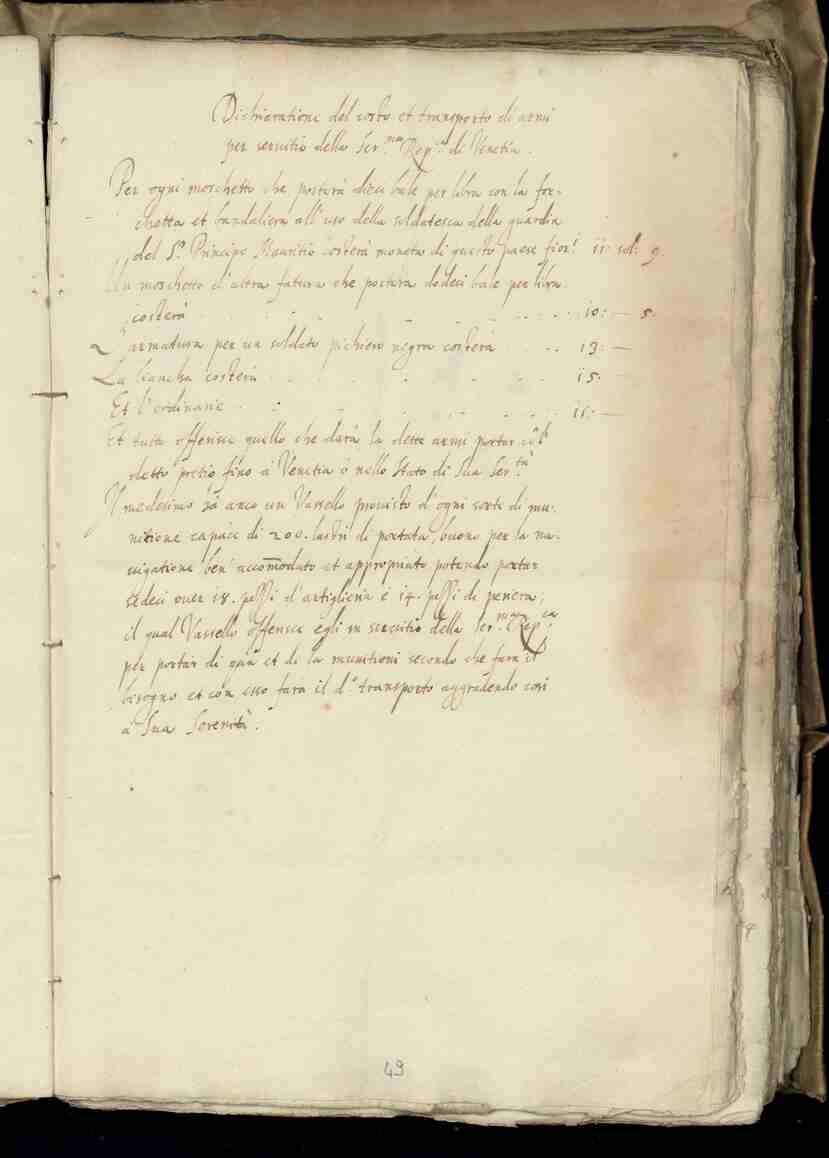 Dichiaratione del costo et transporto di armi
per servitio della Ser.ma Rep.ca di Venetia.
Per ogni moschetto che portarà dieci bale per libra con la for-
chetta et bandaliera all'uso della soldatesca della guardia
del S.r Principe Mauritio costerà moneta di questo paese fior.i 11: sol: 9.
Un moschetto d'altra fatura che portara dodeci bale per libra
costerà 10: — 5.
L'armatura per un soldato pichiero negra costerà 13: —
La biancha costerà 15: —
Et l'ordinarie 11: —
Et tutto offerisce quello che darà le dette armi portar
detto pretio fino à Venetia ò nello Stato di Sua Ser.tà
Il medesimo hà anco un Vassello provisto d'ogni sorte di mu-
nitione capace di 200. lastri di portata, buono per la na-
vigatione ben accom̃odato et appropriato potendo portar
sedeci over 18. pessi d'artiglieria è 14. pessi de
il qual Vassello offerisce egli in servitio della Ser.ma Rep.ca
per portar di quà et di là munitioni secondo che farà il
bisogno et con esso farà il d.o transporto aggradendo così
à Sua Serenità.
49